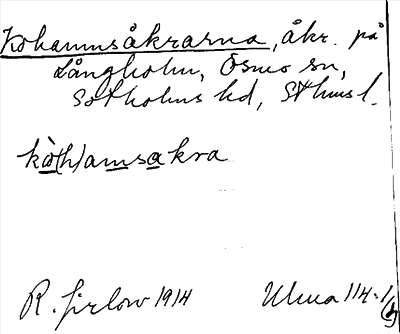 Kohamnsåkrarna, åkr. på
Långholm, Ösmo sn,
Sotholms hd, Sthms l.
kò(h)amsakra
R. Jirlow 1914 Ulma 114:1